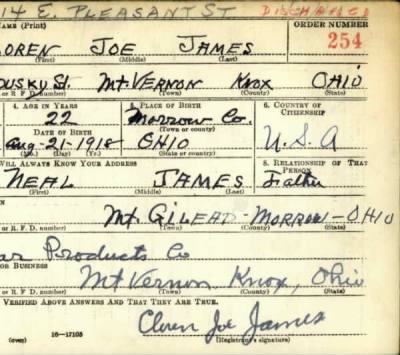 14 E. PLEASANT ST DISCHARGED
NAME (Print) ORDER NUMBER
LOREN JOE JAMES 254
(First) (Middle) (Last)
DUSKY St. Mt VERNON KNOX OHIO
or R. F. D. number) (Town) (County) (State)
4. AGE IN YEARS 5. PLACE OF BIRTH 6. COUNTRY OF CITIZENSHIP
22 Morrow Co.
DATE OF BIRTH (Town or county)
Aug-21-1918 OHIO U.S.A
(Mo.) (Day) (Yr.) (State or country)
WILL ALWAYS KNOW YOUR ADDRESS 8. RELATIONSHIP OF THAT PERSON
NEAL JAMES Father
(First) (Middle) (Last)
Mt. GILEAD-MORROW-OHIO
or R. F. D. number) (Town) (County) (State)
ar Products Co
OR BUSINESS
Mt Vernon Knox, Ohio
or R. F. D. number) (Town) (County) (State)
VERIFIED ABOVE ANSWERS AND THAT THEY ARE TRUE.
Joe James
(over) 16-17105 (Registrant's signature)